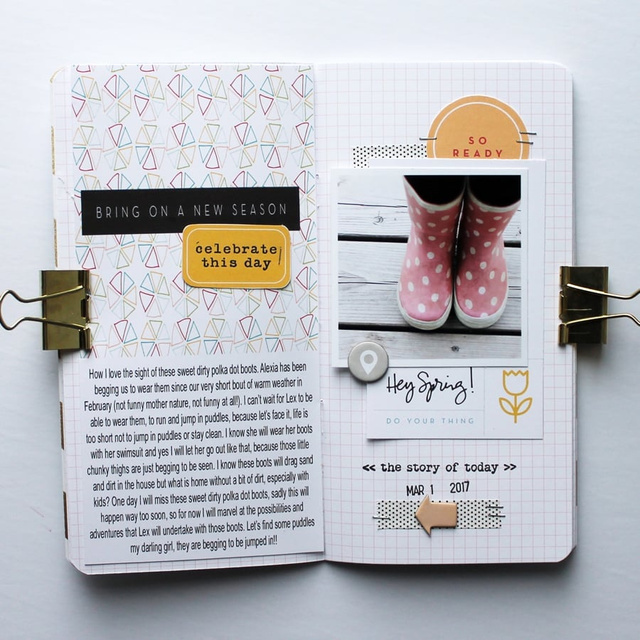 BRING ON A NEW SEASON
celebrate
this day!
How I love the sight of these sweet dirty polka dot boots. Alexia has been
begging us to wear them since our very short bout of warm weather in
February (not funny mother nature, not funny at all!). I can't wait for Lex to be
able to wear them, to run and jump in puddles, because let's face it, life is
too short not to jump in puddles or stay clean. I know she will wear her boots
with her swimsuit and yes I will let her go out like that, because those little
chunky thighs are just begging to be seen. I know these boots will drag sand
and dirt in the house but what is home without a bit of dirt, especially with
kids? One day I will miss these sweet dirty polka dot boots, sadly this will
happen way too soon, so for now I will marvel at the possibilities and
adventures that Lex will undertake with those boots. Let's find some puddles
my darling girl, they are begging to be jumped in!!
SO
READY
Hey Spring!
DO YOUR THING
<< the story of today >>
MAR 1 2017